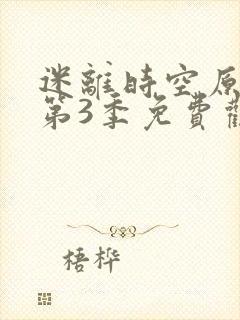 迷離時空原
第3季免費
梧桦